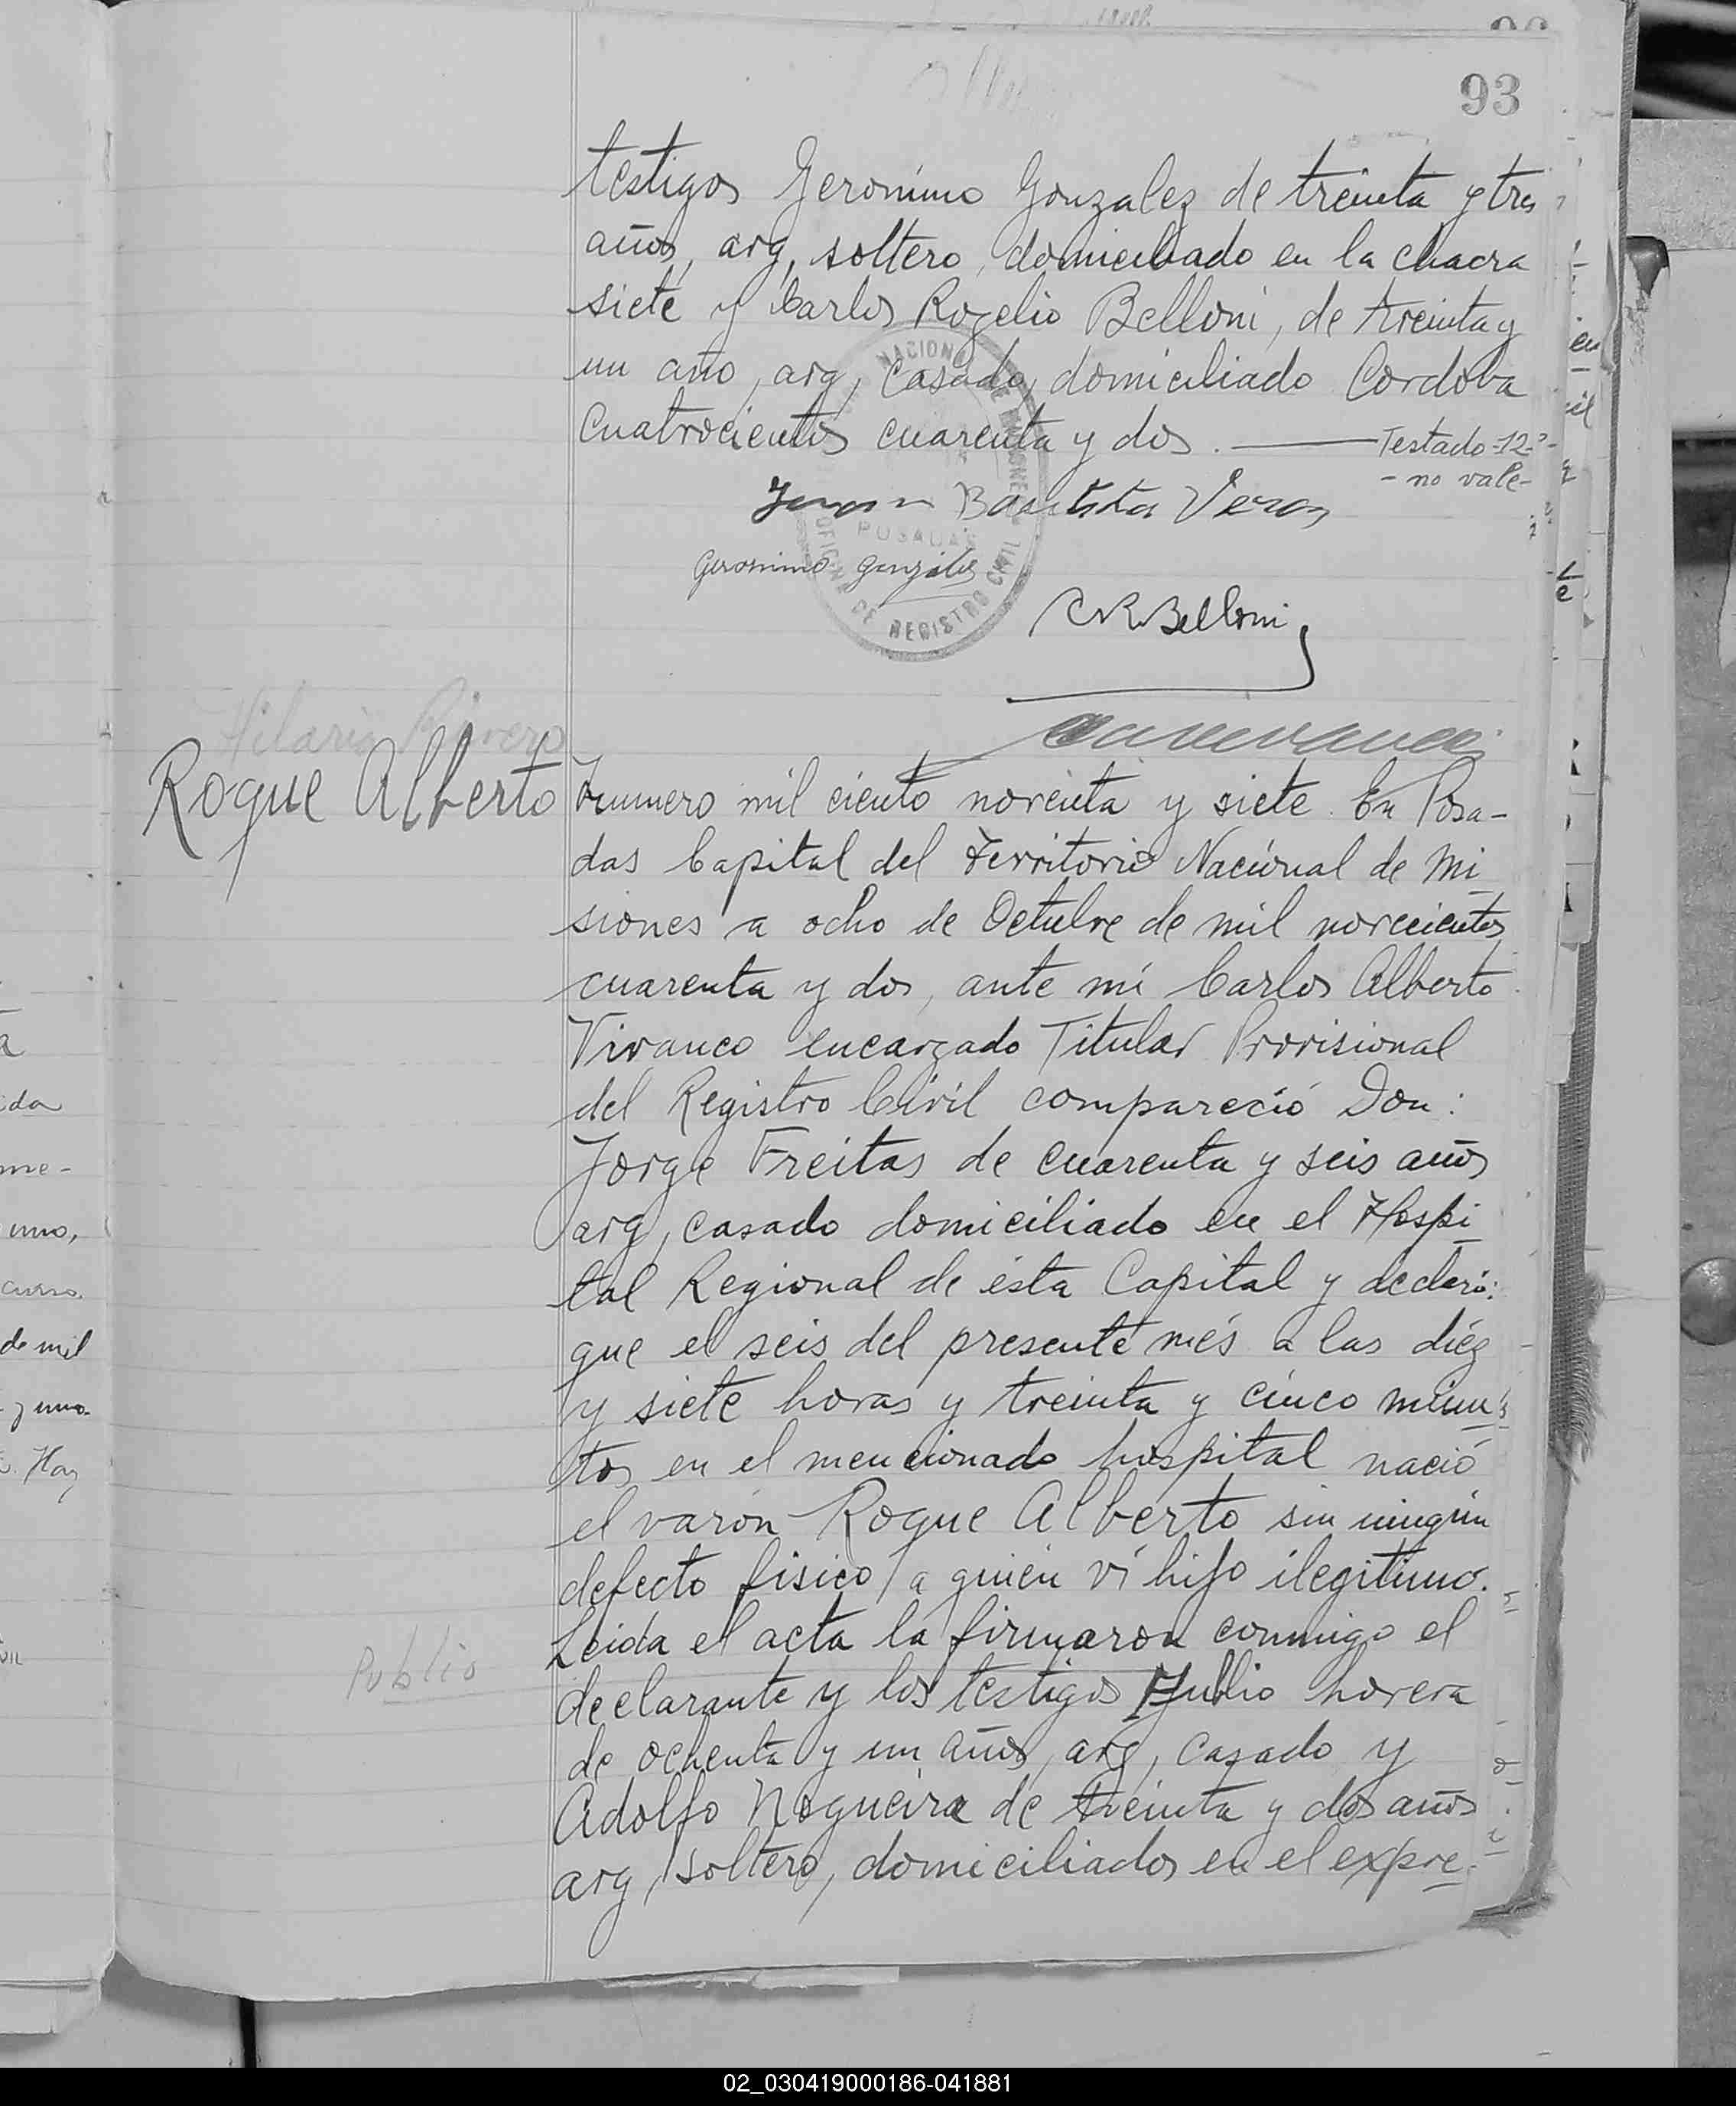 93
testigos Geronimo Gonzalez de treinta y tres
años, arg, soltero, domiciliado en la chacra
siete y Carlos Rogelio Belloni, de treinta y
un año, arg, casado, domiciliado Cordoba
Cuatrocientos cuarenta y dos. — Testado-12-
- no vale-
Juan Bautista Vera
Geronimo González
C R Belloni
NACIONAL DE MISIONES
POSADAS
OFICINA DE REGISTRO CIVIL
Hilario Rivero
Roque Alberto
Numero mil ciento noventa y siete. En Posa-
das Capital del Territorio Nacional de Mi
siones a ocho de Octubre de mil novecientos
cuarenta y dos, ante mí Carlos Alberto
Vivanco encargado Titular Provisional
del Registro Civil compareció Don:
Jorge Freitas de cuarenta y seis años
arg, casado domiciliado en el Hospi
tal Regional de ésta Capital y declaró:
que el seis del presente més a las diéz
y siete horas y treinta y cinco minu
tos en el mencionado hospital nació
el varón Roque Alberto sin ningún
defecto fisico a quién ví hijo ilegitimo.
Leida el acta la firmaron conmigo el
Publio
declarante y los testigos Publio
de ochenta y un años, arg, casado y
Adolfo Nogueira de treinta y dos años
arg, soltero, domiciliados en el expre
02_030419000186-041881